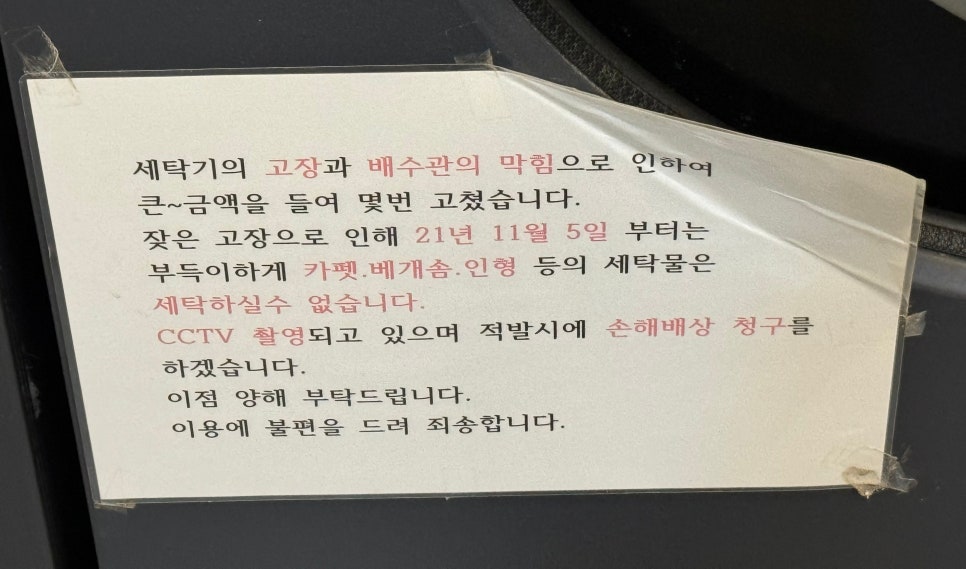 세탁기의 고장과 배수관의 막힘으로 인하여
큰~금액을 들여 몇번 고쳤습니다.
잦은 고장으로 인해 21년 11월 5일 부터는
부득이하게 카펫.베개솜.인형 등의 세탁물은
세탁하실수 없습니다.
CCTV 촬영되고 있으며 적발시에 손해배상 청구를
하겠습니다.
이점 양해 부탁드립니다.
이용에 불편을 드려 죄송합니다.